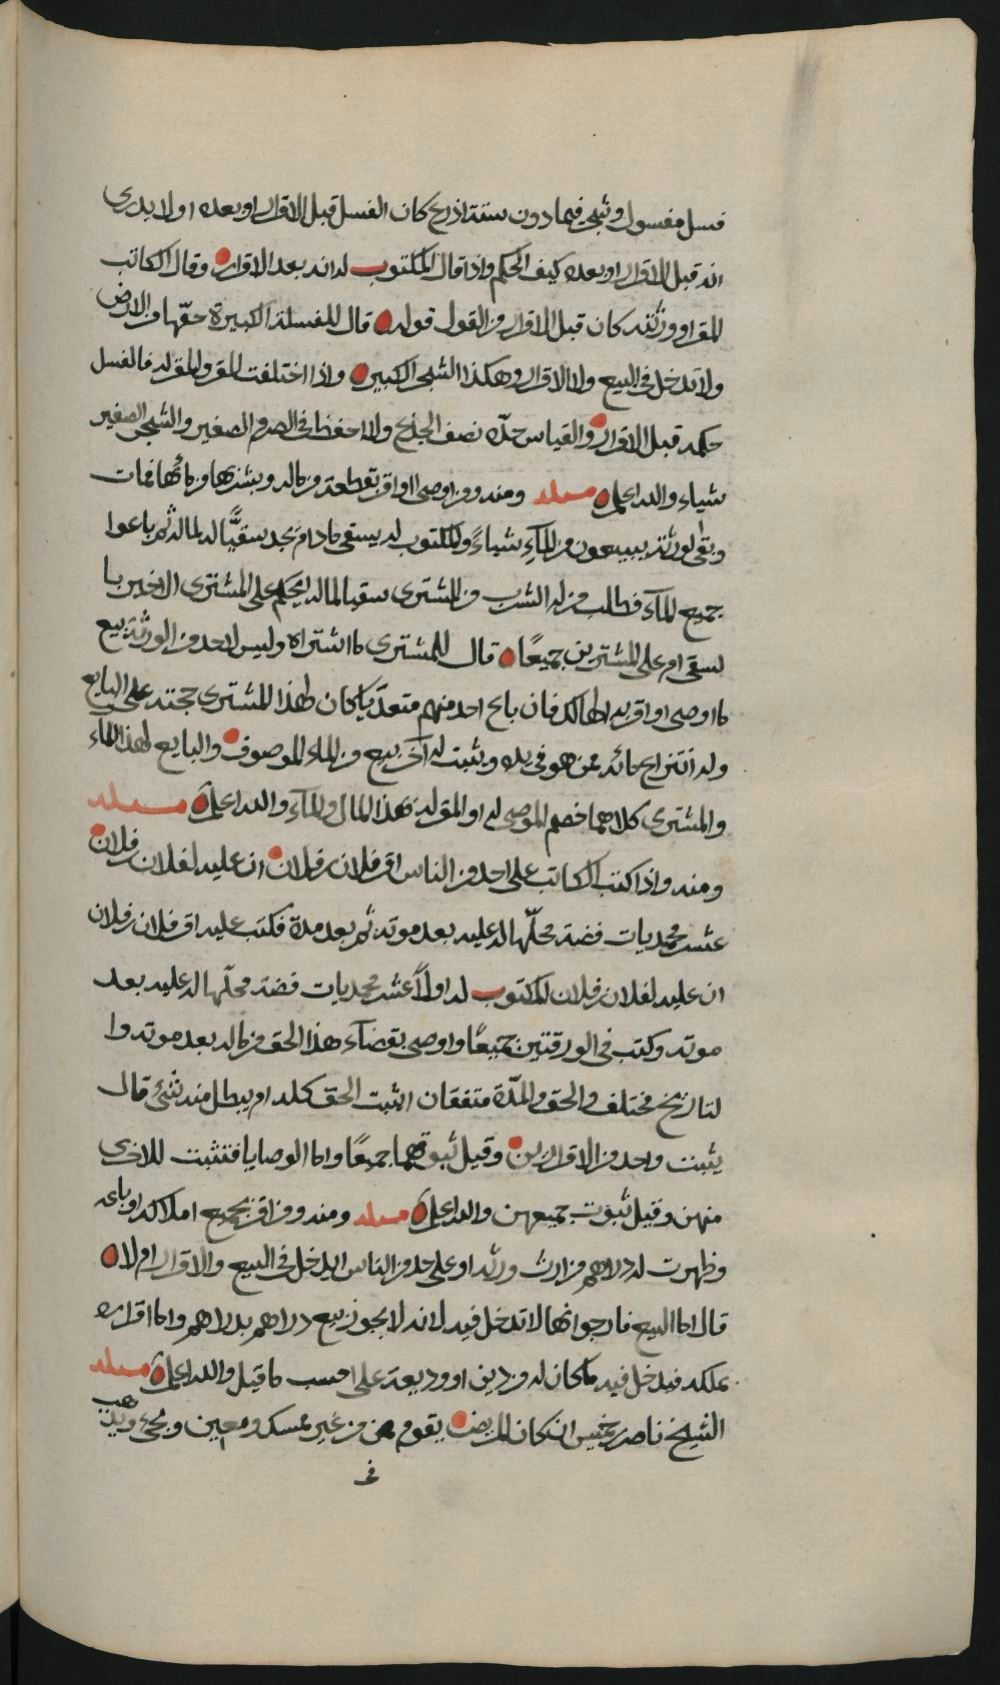 فسل مفسول وشجر فيما دون ستة اذرع كان الفسل قبل الاقرار او بعده او لا يدرى
انه قبل الاقرار او بعده كيف الحكم واذا قال المكتوب له انه بعد الاقرار وقال الكاتب
المقر او ورثته كان قبل الاقرار من القول قوله قال للفسلة الكبيرة حقها من الارض
ولا تدخل فى البيع ولا الاقرار وهكذا الشجر الكبير واذا اختلفت المقر والمقر له فالفسل
حكمه قبل الاقرار والقياس حده نصف الجذع ولا احفظ فى الصرم الصغير والشجر الصغير
شياء والله اعلم مسئلة ومنه ومن اوصى او اقر بقطعة من ماله وبشربها من مائها فمات
وبقى لورثته يبيعون من المآء شياءً والمكتوب له يسقى ما دام يجد سقيًّا له لماله ثم باعوا
جميع المآء فطلب من له الشرب من المشترى سقيا لماله ايحكم على المشترى الاخير با
لسقى ام على المشترين جميعًا قال للمشترى ما اشتراه وليس لاحد من الورثة بيع
ما اوصى او اقر به الهالك فان باع احد منهم متعديا كان لهذا المشترى حجته على البايع
وله انتزاع مائه ممن هو فى يده ويثبت له آخر بيع من الماء الموصوف والبايع لهذا الماء
والمشترى كلاهما خصم الموصى له او المقر له بهذا المال والمآء والله اعلم مسئلة
ومنه واذا كتب الكاتب على احد من الناس اقر فلان بن فلان ان عليه لفلان بن فلان
عشر محمديات فضة محلّها له عليه بعد موته ثم بعد مدة فكتب عليه اقر فلان بن فلان
ان عليه لفلان بن فلان المكتوب له اولاً عشر محمديات فضة محلّها له عليه بعد
موته وكتب فى الورقتين جميعًا واوصى بقضآء هذا الحق من ماله بعد موته وا
لتاريخ مختلف والحق والمدّة متفقان ايثبت الحق كله ام يبطل منه شئ قال
يثبت واحد من الاقرارين وقيل ثبوتهما جميعًا واما الوصايا فتثبت للاخرى
منهن وقيل ثبوت جميعهن والله اعلم مسئلة ومنه ومن اقر بجميع املاكه او باعه
وظهرت له دراهم من ارث ورثه او على احد من الناس ايدخل فى البيع والاقرار ام لا
قال اما البيع فارجوا انها لا تدخل فيه لانه لا يجوز بيع دراهم بدراهم واما اقراره
بملكه فيدخل فيه ما كان له من دين او وديعة على احسب ما قيل والله اعلم مسئلة
الشيخ ناصر بن خميس ان كان المريض يقوم من غير ممسك ومعين ويجئ ويذهب
فى